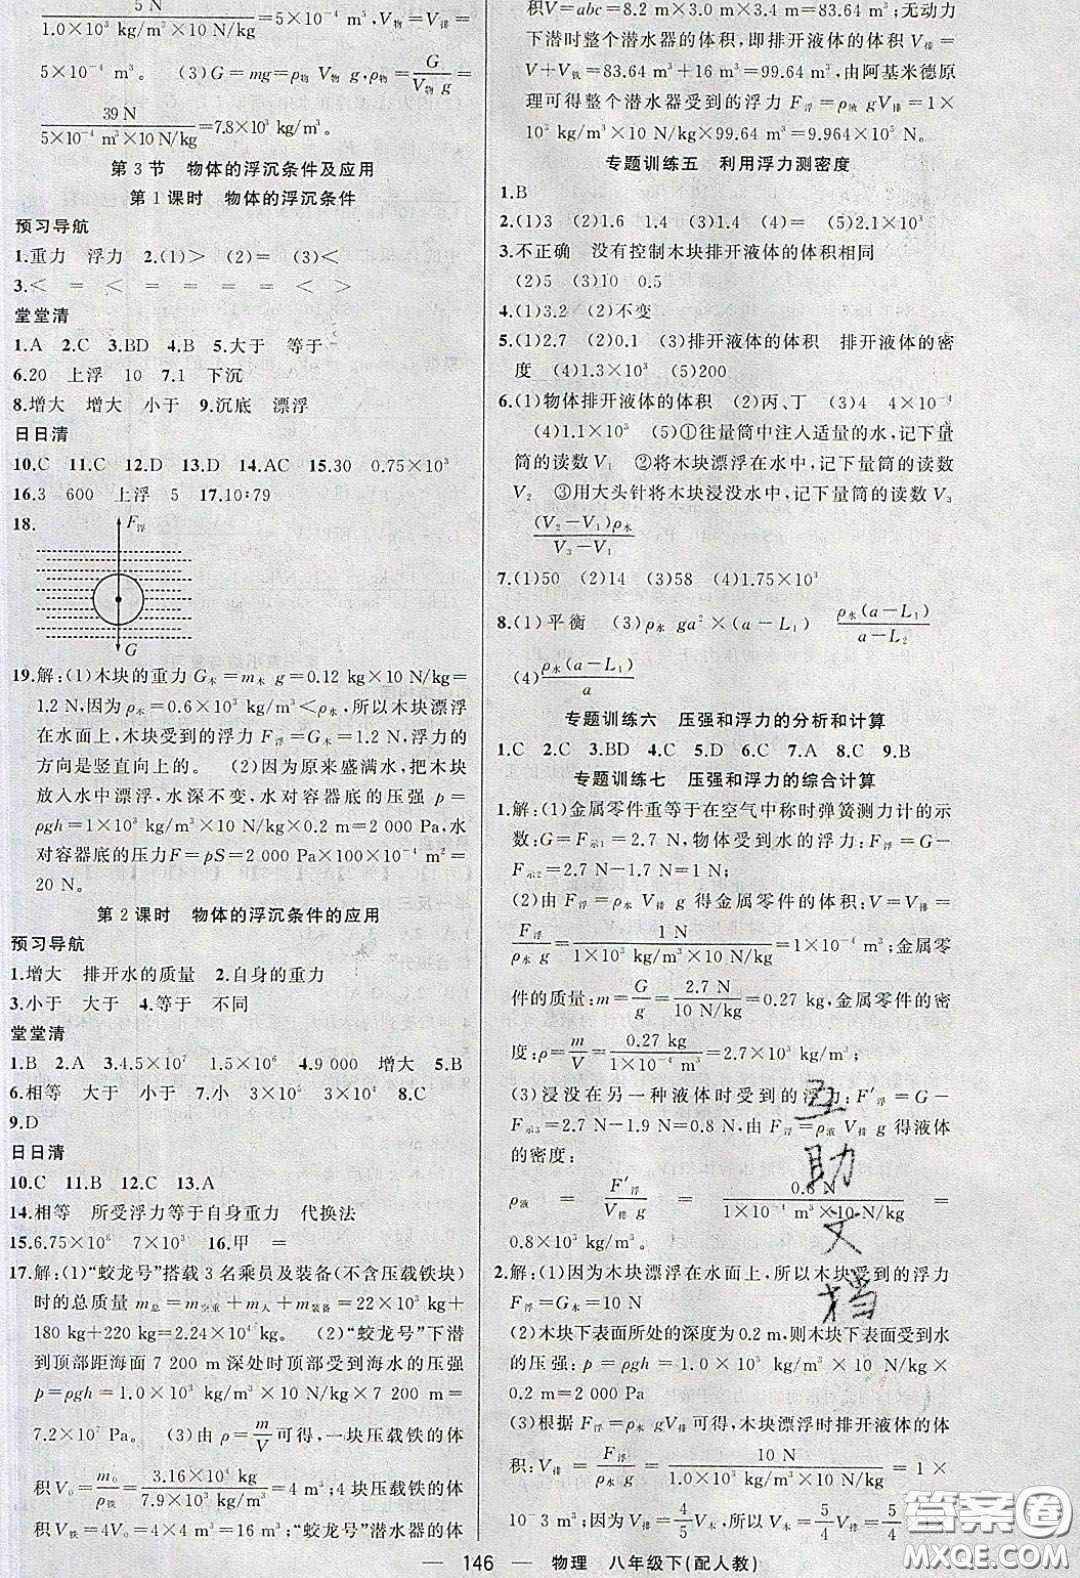 5 N/(1.0×10³ kg/m³×10 N/kg)=5×10⁻⁴ m³,V物=V排=
5×10⁻⁴ m³。 (3)G=mg=ρ物 V物 g,ρ物=G/(V物 g)=
39 N/(5×10⁻⁴ m³×10 N/kg)=7.8×10³ kg/m³。
第3节 物体的浮沉条件及应用
第1课时 物体的浮沉条件
预习导航
1.重力 浮力 2.(1)> (2)= (3)<
3.< = < = = = > >
堂堂清
1.A 2.C 3.BD 4.B 5.大于 等于
6.20 上浮 10 7.1 下沉
8.增大 增大 小于 9.沉底 漂浮
日日清
10.C 11.C 12.D 13.D 14.AC 15.30 0.75×10³
16.3 600 上浮 5 17.10:79
18.
F浮
G
19.解:(1)木块的重力G木=m木 g=0.12 kg×10 N/kg=
1.2 N,因为ρ木=0.6×10³ kg/m³<ρ水,所以木块漂浮
在水面上,木块受到的浮力F浮=G木=1.2 N,浮力的
方向是竖直向上的。 (2)因为原来盛满水,把木块
放入水中漂浮,水深不变,水对容器底的压强 p=
ρgh=1.0×10³ kg/m³×10 N/kg×0.2 m=2 000 Pa,水
对容器底的压力F=pS=2 000 Pa×100×10⁻⁴ m²=
20 N。
第2课时 物体的浮沉条件的应用
预习导航
1.增大 排开水的质量 2.自身的重力
3.小于 大于 4.等于 不同
堂堂清
1.B 2.A 3.4.5×10⁷ 1.5×10⁶ 4.9 000 增大 5.B
6.相等 大于 小于 7.小 3×10⁵ 3×10⁶ 8.C
9.D
日日清
10.C 11.B 12.A 13.A
14.相等 所受浮力等于自身重力 代换法
15.6.75×10⁶ 7×10³ 16.甲 =
17.解:(1)“蛟龙号”搭载3名乘员及装备(不含压载铁块)
时的总质量 m总=m空重+m人+m装备=22×10³ kg+
180 kg+220 kg=2.24×10⁴ kg。 (2)“蛟龙号”下潜
到顶部距海面 7 200 m深处时顶部受到海水的压强
p=ρgh=1.0×10³ kg/m³×10 N/kg×7 200 m=
7.2×10⁷ Pa。 (3)由ρ=m/V可得,一块压载铁的体
积V₀=m₀/ρ铁=3.16×10⁴ kg/(7.9×10³ kg/m³)=4 m³;4块压载铁的体
积V铁=4V₀=4×4 m³=16 m³;“蛟龙号”潜水器的体
积V=abc=8.2 m×3.0 m×3.4 m=83.64 m³;无动力
下潜时整个潜水器的体积,即排开液体的体积 V排=
V+V铁=83.64 m³+16 m³=99.64 m³,由阿基米德原
理可得整个潜水器受到的浮力F浮=ρ液 gV排=1×
10³ kg/m³×10 N/kg×99.64 m³=9.964×10⁵ N。
专题训练五 利用浮力测密度
1.B
2.(1)3 (2)1.6 1.4 (3)1.4 (4)= (5)2.1×10³
3.不正确 没有控制木块排开液体的体积相同
(2)5 (3)10 0.5
4.(1)3.2 (2)不变
5.(1)2.7 (2)0.1 (3)排开液体的体积 排开液体的密
度 (4)1.3×10³ (5)200
6.(1)物体排开液体的体积 (2)丙、丁 (3)4 4×10⁻⁴
(4)1.0×10³ (5)①往量筒中注入适量的水,记下量
筒的读数V₁ ②将木块漂浮在水中,记下量筒的读数
V₂ ③用大头针将木块浸没水中,记下量筒的读数V₃
(V₂-V₁)ρ水/(V₃-V₁)
7.(1)50 (2)14 (3)58 (4)1.75×10³
8.(1)平衡 (3)ρ水 ga²×(a-L₁) ρ水(a-L₁)/(a-L₂)
(4)ρ水(a-L₁)/a
专题训练六 压强和浮力的分析和计算
1.C 2.C 3.BD 4.C 5.D 6.C 7.A 8.C 9.B
专题训练七 压强和浮力的综合计算
1.解:(1)金属零件重等于在空气中称时弹簧测力计的示
数:G=F示1=2.7 N,物体受到水的浮力:F浮=G-
F示2=2.7 N-1.7 N=1 N;
(2)由 F浮=ρ水 V排 g 得金属零件的体积:V=V排=
F浮/(ρ水 g)=1 N/(1×10³ kg/m³×10 N/kg)=1×10⁻⁴ m³;金属零
件的质量:m=G/g=2.7 N/(10 N/kg)=0.27 kg,金属零件的密
度:ρ=m/V=0.27 kg/(1×10⁻⁴ m³)=2.7×10³ kg/m³;
(3)浸没在另一种液体时受到的浮力:F′浮=G-
F示3=2.7 N-1.9 N=0.8 N,由 F浮=ρ液 V排 g 得液体
的密度:
ρ液 = F′浮/(V排 g) = 0.8 N/(1×10⁻⁴ m³×10 N/kg) =
0.8×10³ kg/m³。
2.解:(1)因为木块漂浮在水面上,所以木块受到的浮力
F浮=G木=10 N
(2)木块下表面所处的深度为0.2 m,则木块下表面受到水
的压强:p=ρgh=1.0×10³ kg/m³×10 N/kg×
0.2 m=2 000 Pa
(3)根据 F浮=ρ水 gV排 可得,木块漂浮时排开液体的体
积:V排=F浮/(ρ水 g)=10 N/(1.0×10³ kg/m³×10 N/kg)=1×
10⁻3 m³;因为V排=4/5V木,所以V木=5/4V排=5/4×1×
互助文档
答案圈
— 146 — 物理 八年级下(配人教)